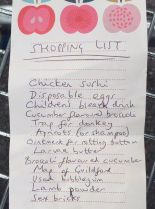 SHOPPING LIST
Chicken sushi
Disposable eggs
Children's bleach drink
Cucumber flavoured broccoli
Trap for donkey
Apricots (or shampoo)
Ointment for rotting button
Larvae butter
Broccoli flavoured cucumber
Map of Guildford
Used bubblegum
Lamb powder
Sex bricks